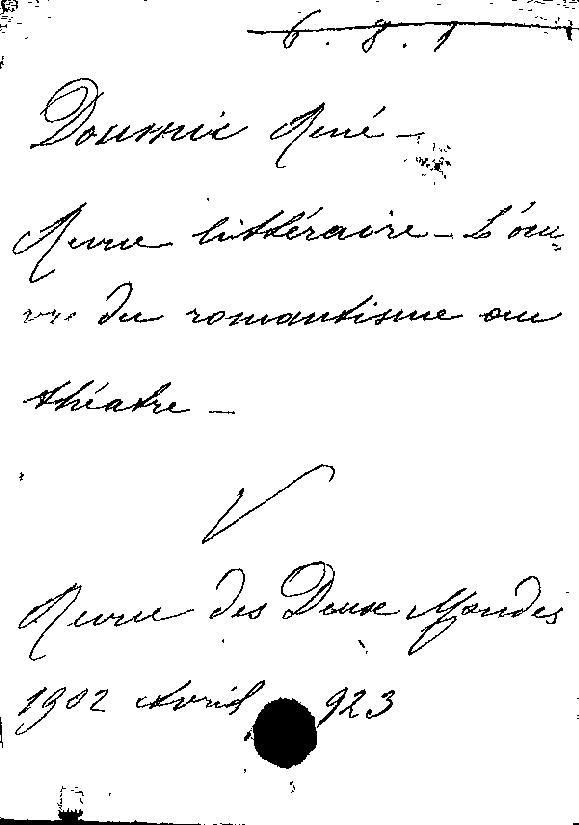 6.8.1
Doumic René -
Revue littéraire - L'œu=
vre du romantisme au
théatre -
V
Revue des Deux Mondes
1902 Avril 923